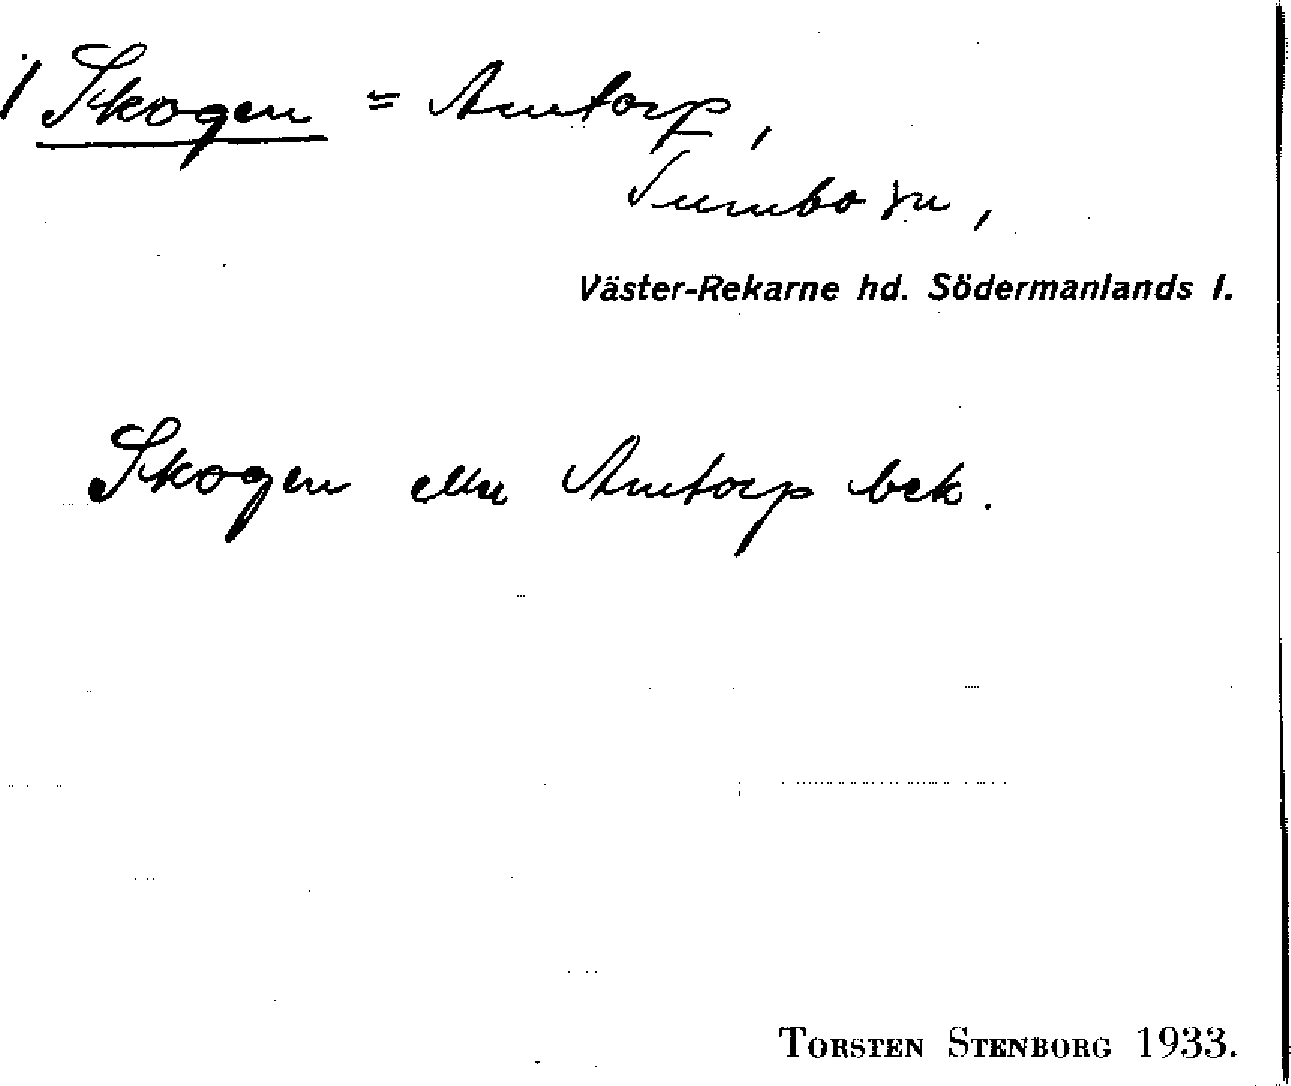 / Skogen = Amtorp,
Tumbo sn,
Väster-Rekarne hd. Södermanlands l.
Skogen eller Amtorp bek.
TORSTEN STENBORG 1933.